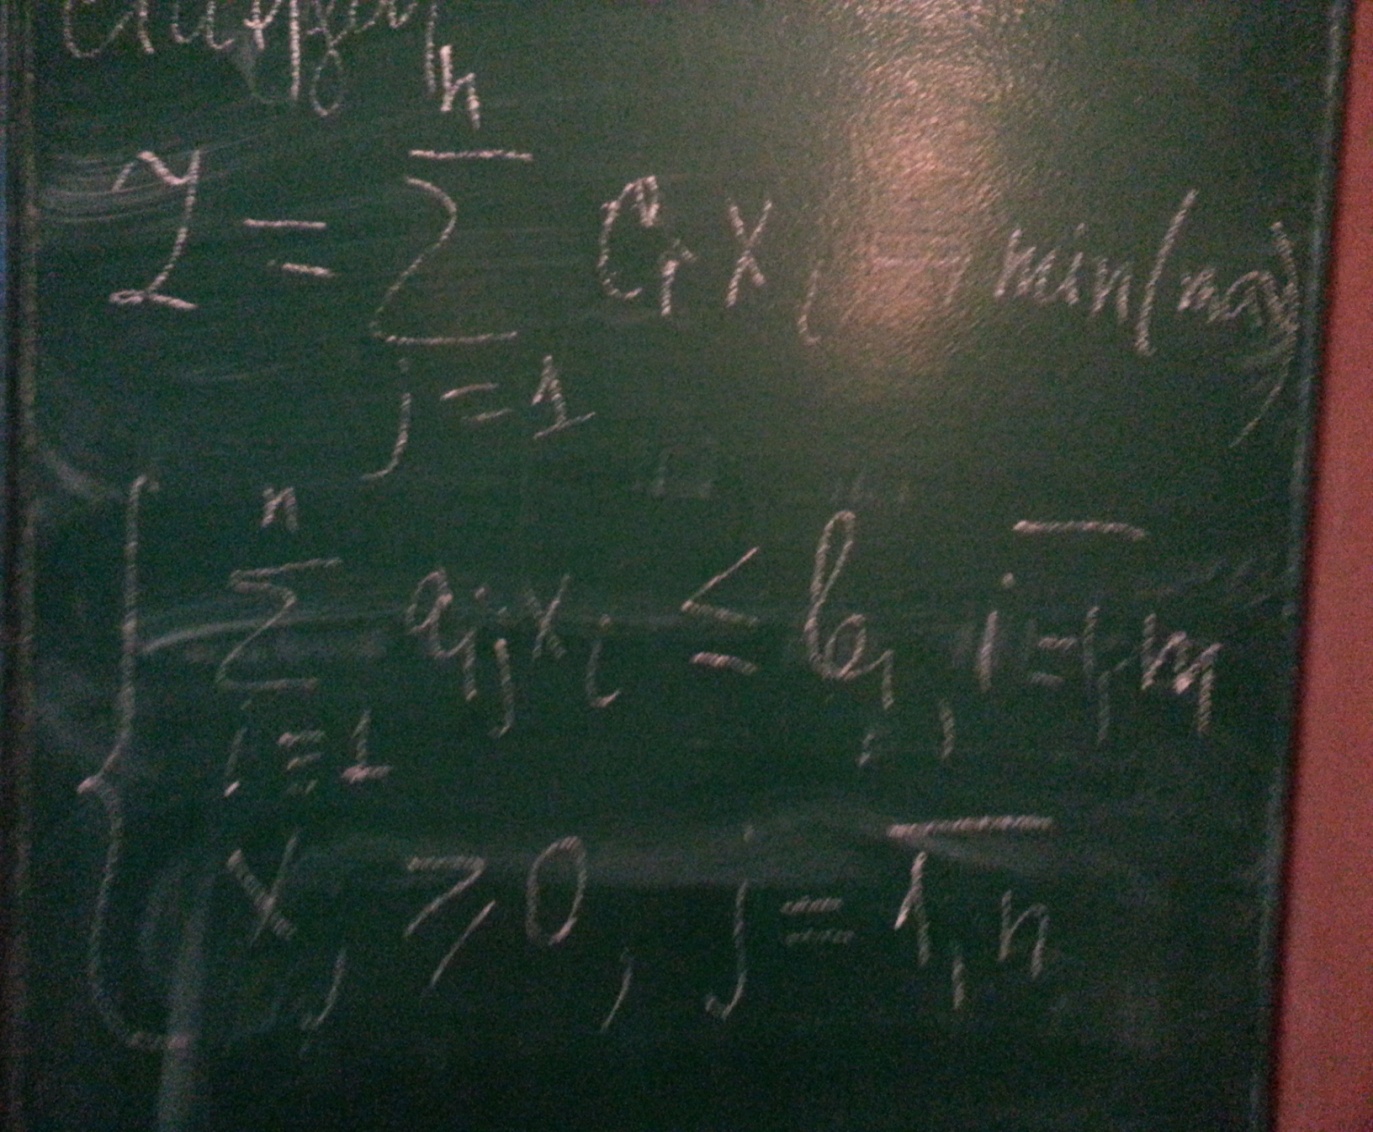 Z = ∑_{j=1}^{n} C_j x_j → min(max)
{ ∑_{j=1}^{n} a_{ij} x_j ≤ b_i, i = \overline{1,m}
x_j ⩾ 0, j = \overline{1,n}